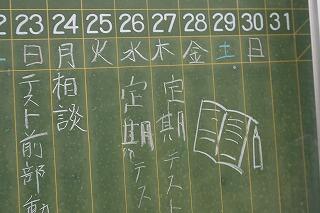 23 24 25 26 27 28 29 30 31
日 月 火 水 木 金 土 日
テスト前部動
相談
定期テス
定期テスト